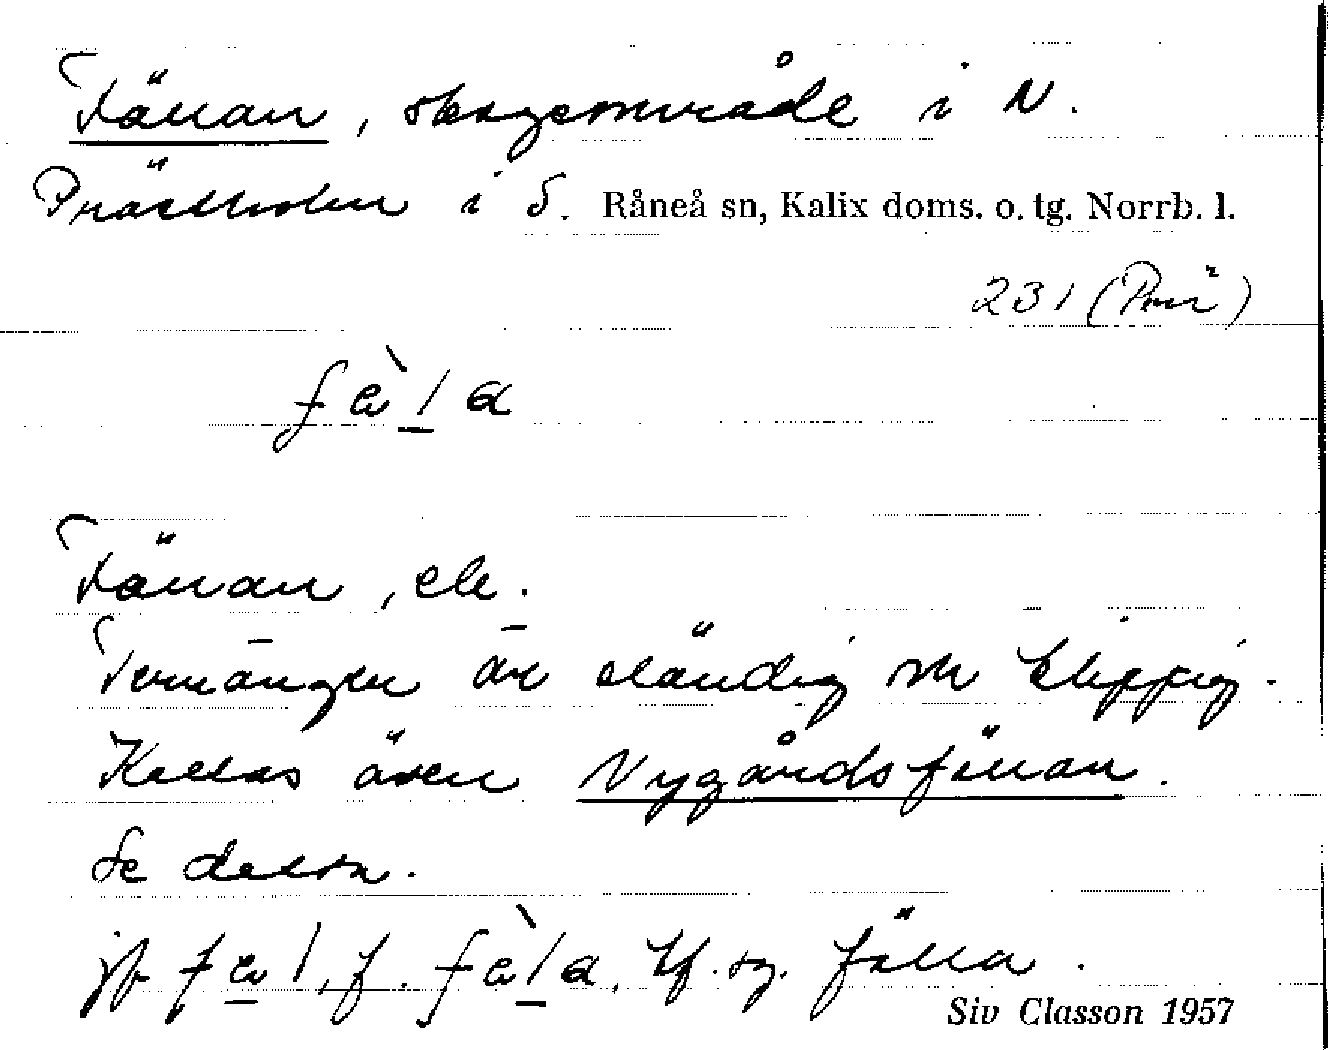 Fällan, skogsområde i N.
Prästholm i S. Råneå sn, Kalix doms. o. tg. Norrb. l.
231 (Prä)
fàla
Fällan, ele.
Terrängen är eländig och klippig.
Kallas även Nygårdsfällan.
Se detta.
jfr fäl, f. fàla, bf. sg. fälla.
Siv Classon 1957